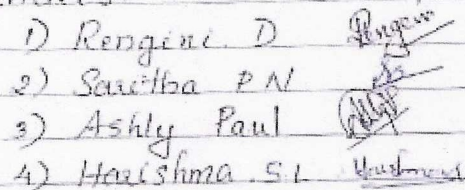 1) Rengini. D
2) Saritha P N
3) Ashly Paul
4) Harishma. S.L